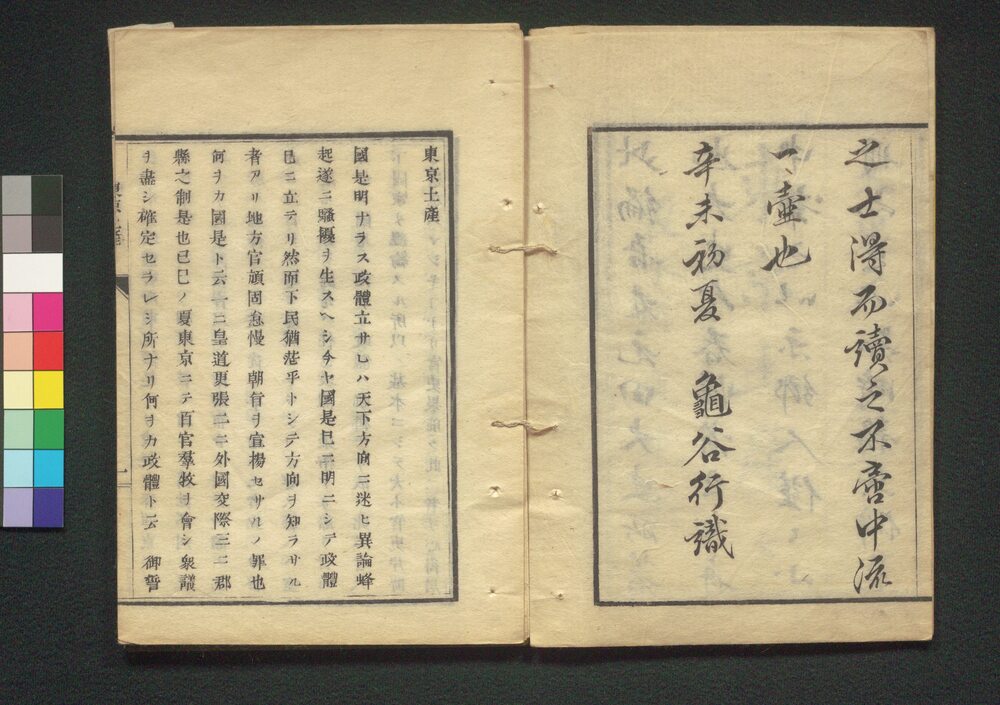 之士得而讀之不啻中流
一壺也
辛未初夏　龜谷行識
東京土產
國是明ナラス政體立サレハ天下方向ニ迷ヒ異論蜂
起遂ニ騷擾ヲ生スヘシ今ヤ國是已ニ明ニシテ政體
已ニ立テリ然而下民猶茫乎トシテ方向ヲ知ラサル
者アリ地方官頑固怠慢　朝旨ヲ宣揚セサルノ罪也
何ヲカ國是ト云一ニ皇道更張二ニ外國交際三ニ郡
縣之制是也己巳ノ夏東京ニテ百官羣牧ヲ會シ衆議
ヲ盡シ確定セラレシ所ナリ何ヲカ政體ト云　御誓